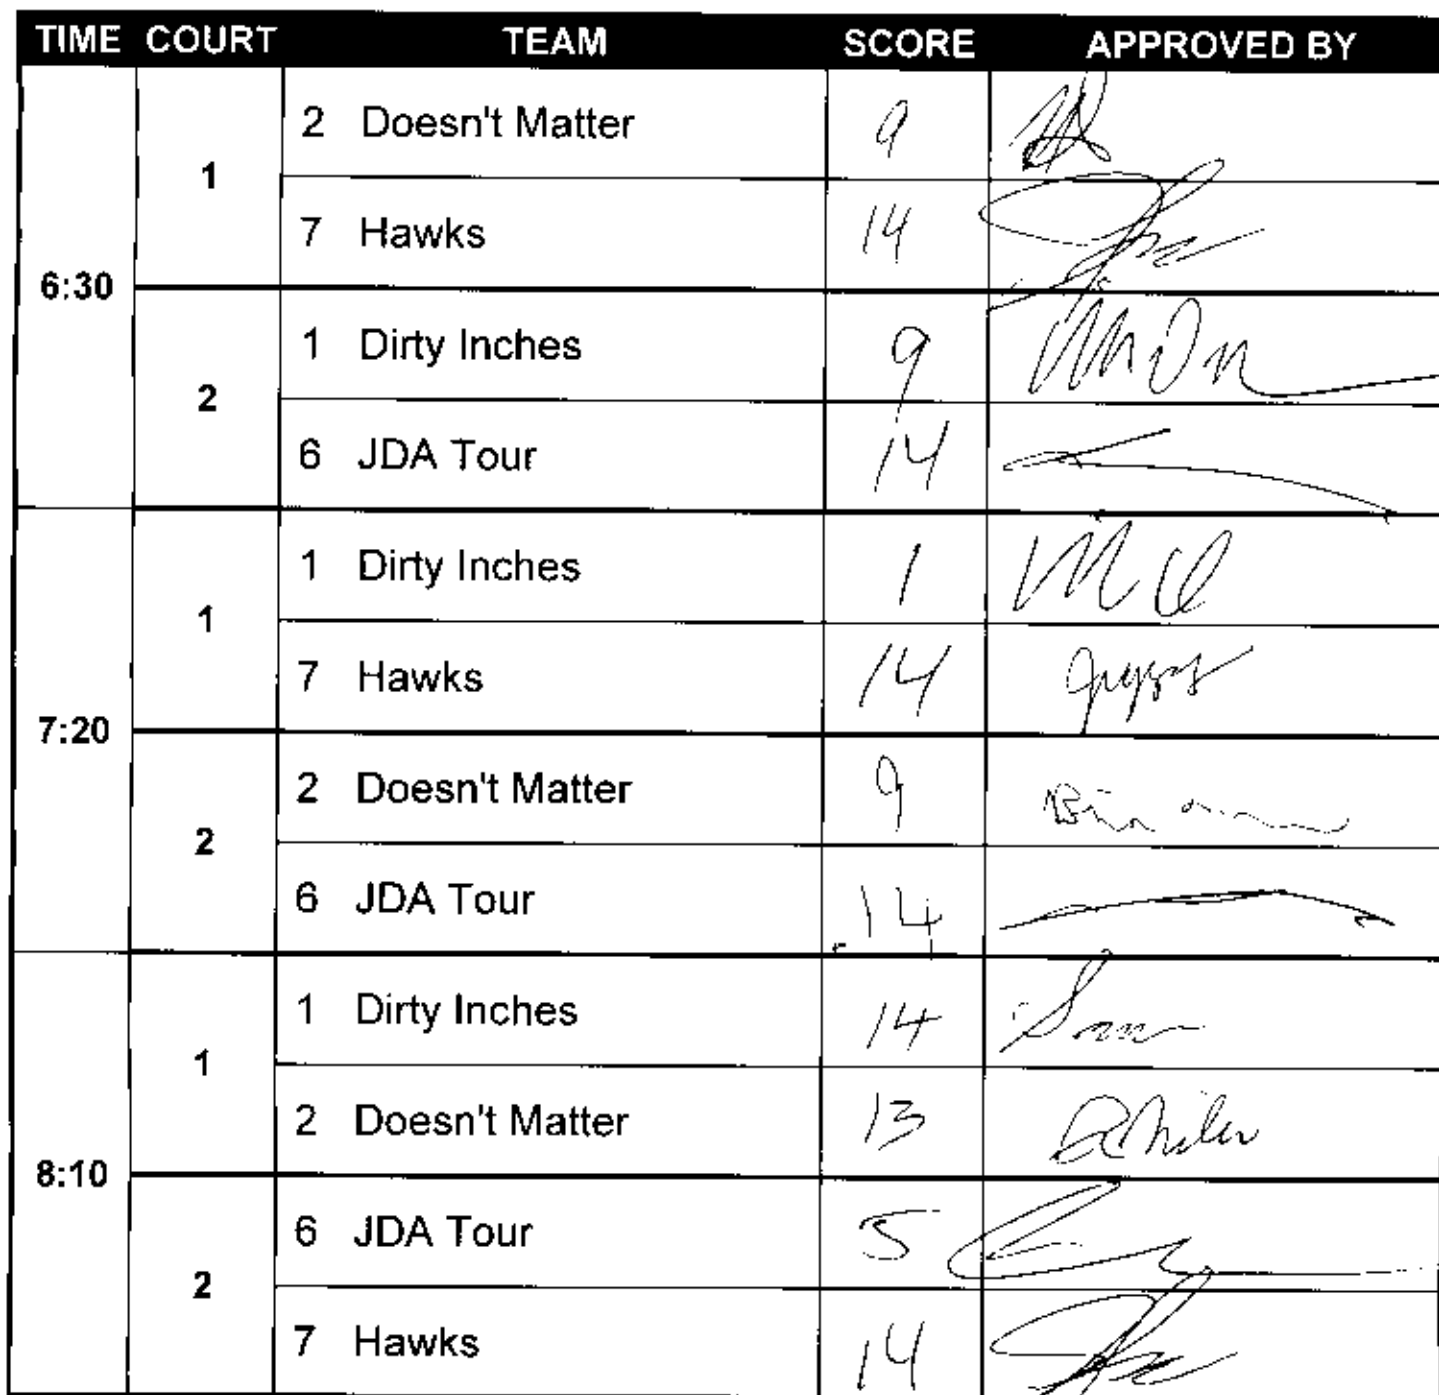 TIME COURT TEAM SCORE APPROVED BY
6:30
1
2 Doesn't Matter 9
7 Hawks 14
2
1 Dirty Inches 9
6 JDA Tour 14
7:20
1
1 Dirty Inches 1
7 Hawks 14
2
2 Doesn't Matter 9
6 JDA Tour 14
8:10
1
1 Dirty Inches 14
2 Doesn't Matter 13
2
6 JDA Tour 5
7 Hawks 14